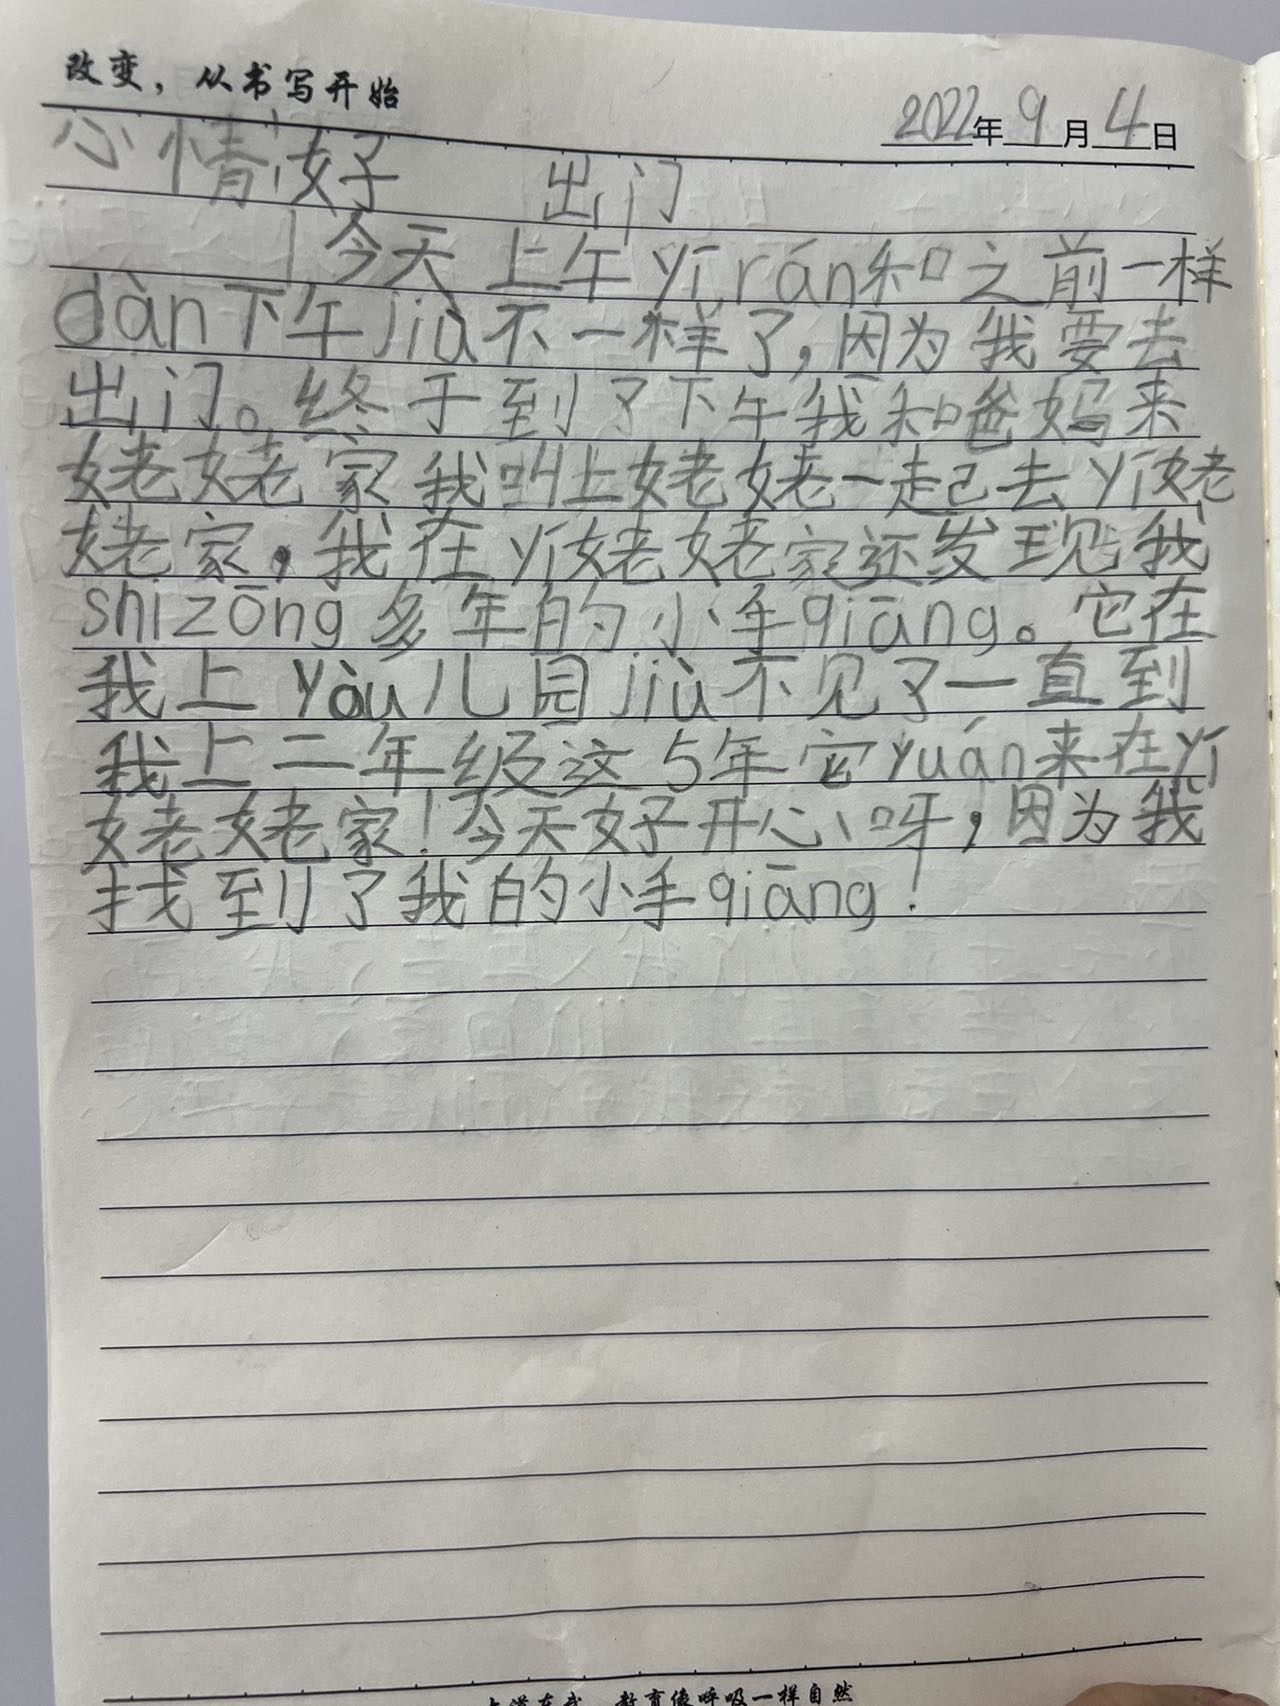 改变，从书写开始
2022年9月4日
心情:好 出门
今天上午yī rán和之前一样
dàn下午jiù不一样了，因为我要去
出门。终于到了下午我和爸妈来
姥姥家我叫上姥姥一起去yí姥
姥家，我在yí姥姥家还发现我
shīzōng多年的小手qiāng。它在
我上yòu儿园jiù不见了一直到
我上二年级这5年它yuán来在yí
姥姥家！今天好开心呀，因为我
找到了我的小手qiāng！
教育像呼吸一样自然